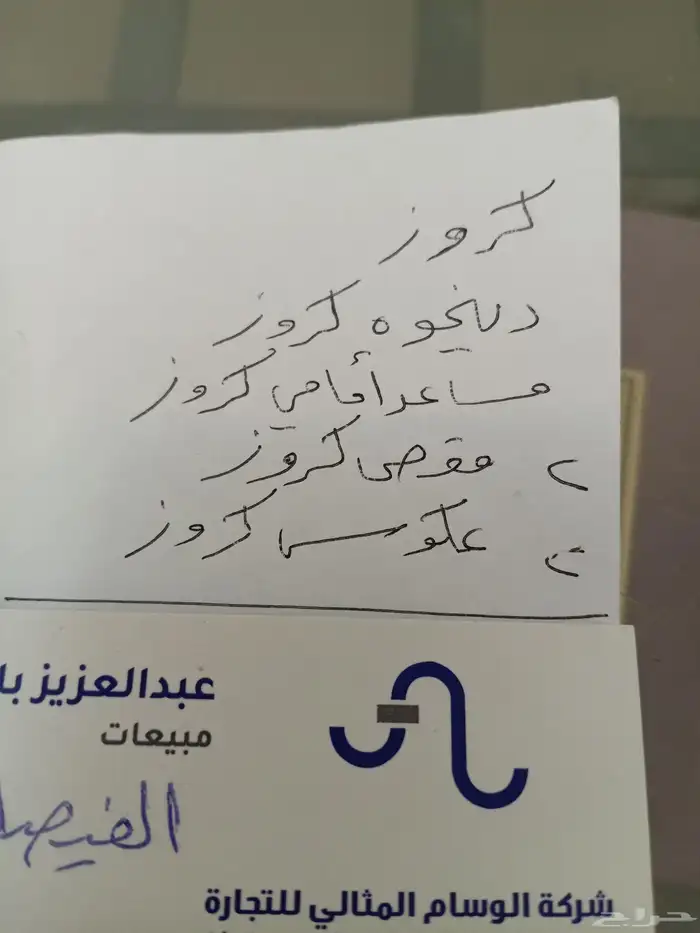 كروز
دينجوه كروز
مساعد أمامي كروز
٢ مقص كروز
٢ عكوس كروز
عبدالعزيز با
مبيعات
الفيصل
شركة الوسام المثالي للتجارة
حراج